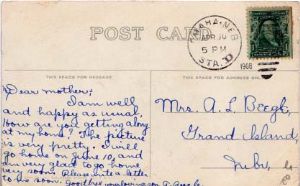 POST CARD
OMAHA, NEB.
5 PM
STA.
1908
THIS SPACE FOR MESSAGE
THIS SPACE FOR ADDRESS ONLY
Dear mother:
I am well
and happy as usual.
How are you getting along
at my home? The picture
is very pretty. I will
go home on June 10, and
am very glad to go home
very soon. Please write a letter
to me soon. Good bye
Mrs. A. L.
Grand Island,
Nebr.